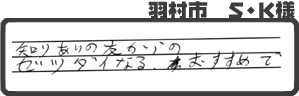 羽村市 S・K様
知りありの友からの
ゼッツダイなる、おすすめで